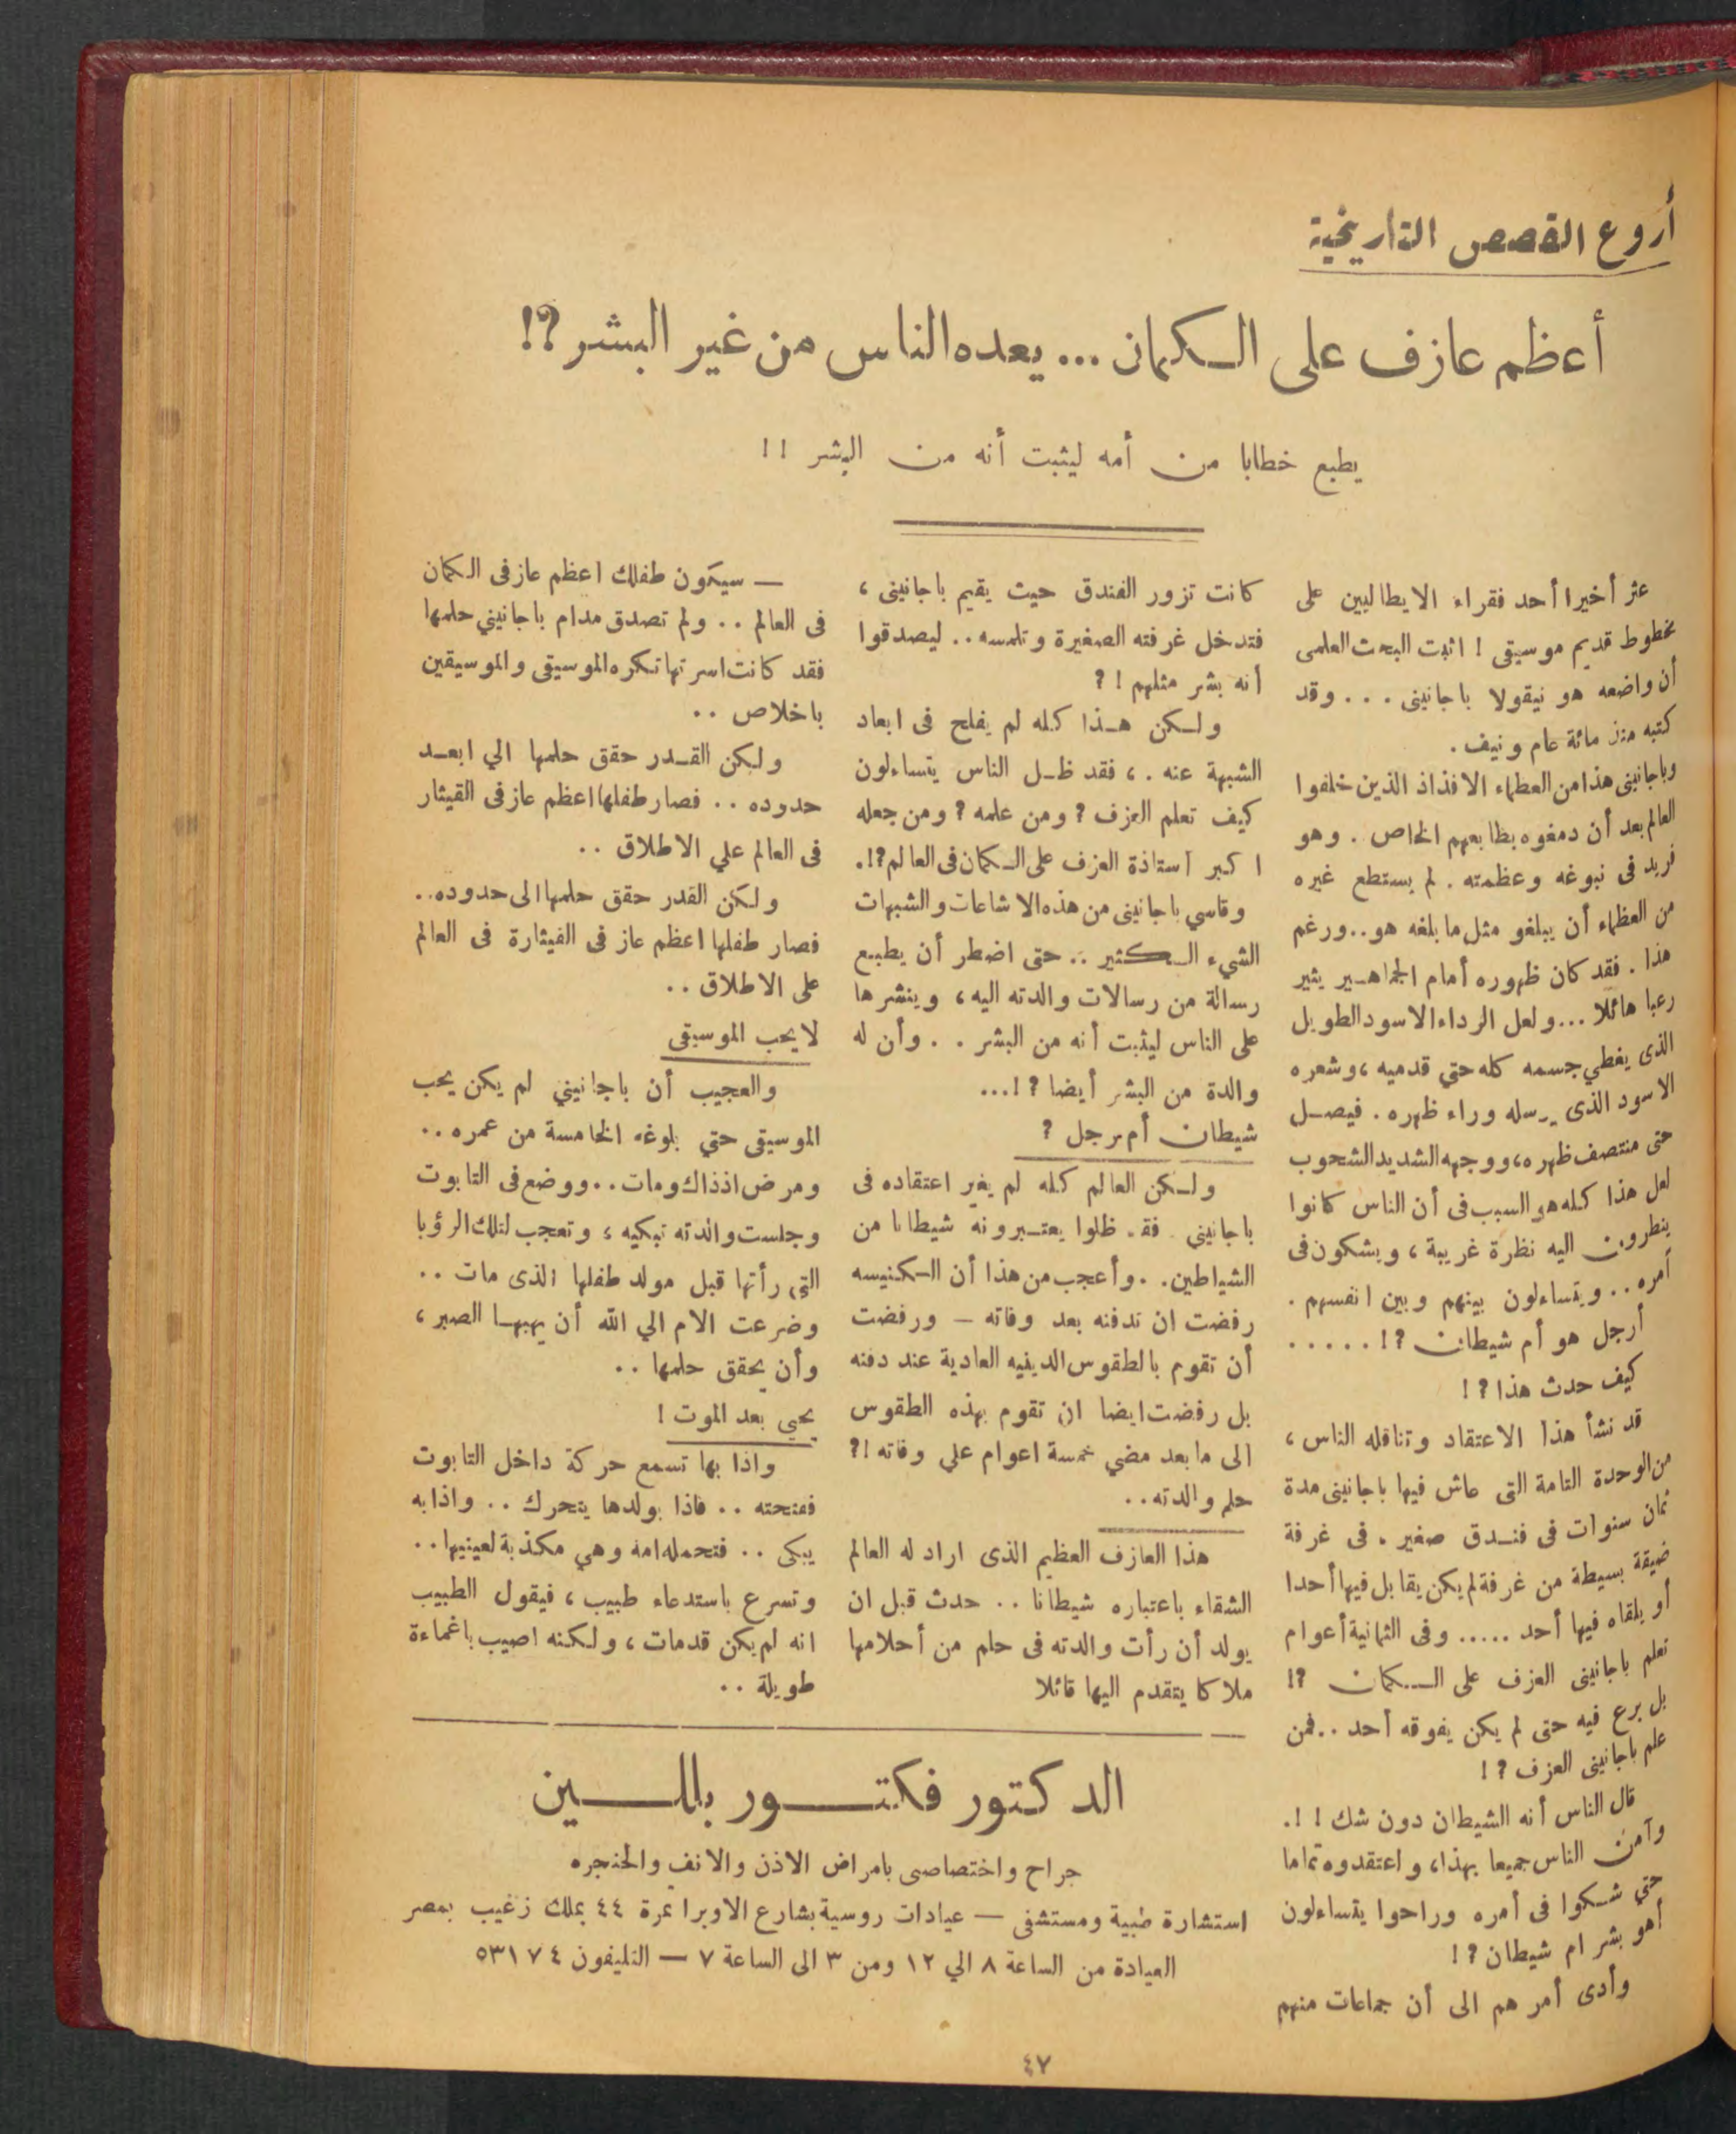 أروع القصص التاريخية
أعظم عازف على الكمان ... يعده الناس من غير البشر ?!
يطبع خطابا من أمه ليثبت أنه من البشر !!
عثر أخيرا أحد فقراء الايطاليين على
مخطوط قديم موسيقى ! اثبت البحث العلمى
أن واضعه هو نيقولا باجانينى . . . وقد
كتبه منذ مائة عام ونيف .
وباجانينى هذا من العظماء الافذاذ الذين خلفوا
العالم بعد أن دمغوه بطابعهم الخاص . وهو
فريد فى نبوغه وعظمته . لم يستطع غيره
من العظماء أن يبلغو مثل ما بلغه هو .. ورغم
هذا . فقد كان ظهوره أمام الجماهير يثير
رعبا هائلا ... ولعل الرداء الاسود الطويل
الذى يغطي جسمه كله حتي قدميه ، وشعره
الاسود الذى يرسله وراء ظهره . فيصل
حتى منتصف ظهره ، ووجهه الشديد الشحوب
لعل هذا كله هو السبب فى أن الناس كانوا
ينظرون اليه نظرة غريبة ، ويشكون فى
أمره .. ويتساءلون بينهم وبين انفسهم .
أرجل هو أم شيطان ?! . . . . .
كيف حدث هذا ?!
قد نشأ هذا الاعتقاد وتناقله الناس ،
من الوحدة التامة التى عاش فيها باجانينى مدة
ثمان سنوات فى فندق صغير . فى غرفة
ضيقة بسيطة من غرفة لم يكن يقابل فيها أحدا
أو يلقاه فيها أحد ..... وفى الثمانية أعوام
تعلم باجانينى العزف على الكمان ?!
بل برع فيه حتى لم يكن يفوقه أحد .. فمن
علم باجانينى العزف ?!
قال الناس أنه الشيطان دون شك !!.
وآمن الناس جميعا بهذا ، واعتقدوه تماما
حتي شكوا فى أمره وراحوا يتساءلون
أهو بشر ام شيطان ?!
وأدى أمرهم الى أن جماعات منهم
كانت تزور الفندق حيث يقيم باجانينى ،
فتدخل غرفته الصغيرة وتلمسه .. ليصدقوا
أنه بشر مثلهم !?
ولكن هذا كله لم يفلح فى ابعاد
الشبهة عنه . ، فقد ظل الناس يتساءلون
كيف تعلم العزف ? ومن علمه ? ومن جعله
اكبر أستاذة العزف على الكمان فى العالم ?!.
وقاسي باجانينى من هذه الاشاعات والشبهات
الشيء الكثير .. حتى اضطر أن يطبع
رسالة من رسالات والدته اليه ، وينشرها
على الناس ليثبت أنه من البشر . . وأن له
والدة من البشر أيضا ?!...
شيطان أم رجل ?
ولكن العالم كله لم يغير اعتقاده فى
باجانيني . فقد ظلوا يعتبرونه شيطانا من
الشياطين. . وأعجب من هذا أن الكنيسه
رفضت ان تدفنه بعد وفاته — ورفضت
أن تقوم بالطقوس الدينيه العادية عند دفنه
بل رفضت ايضا ان تقوم بهذه الطقوس
الى ما بعد مضي خمسة اعوام علي وفاته !?
حلم والدته ..
هذا العازف العظيم الذى اراد له العالم
الشقاء باعتباره شيطانا .. حدث قبل ان
يولد أن رأت والدته فى حلم من أحلامها
ملاكا يتقدم اليها قائلا
— سيكون طفلك اعظم عازفى الكمان
فى العالم .. ولم تصدق مدام باجانيني حلمها
فقد كانت اسرتها تكره الموسيقى والموسيقين
باخلاص ..
ولكن القدر حقق حلمها الي ابعد
حدوده .. فصار طفلها اعظم عازفى القيثار
فى العالم علي الاطلاق ..
ولكن القدر حقق حلمها الى حدوده ..
فصار طفلها اعظم عازفى القيثارة فى العالم
على الاطلاق ..
لا يحب الموسيقى
والعجيب أن باجانيني لم يكن يحب
الموسيقى حتي بلوغه الخامسة من عمره ..
ومرض اذذاك ومات .. ووضع فى التابوت
وجلست والدته تبكيه ، وتعجب لتلك الرؤيا
التي رأتها قبل مولد طفلها الذى مات ..
وضرعت الام الي الله أن يهبها الصبر ،
وأن يحقق حلمها ..
يحيي بعد الموت !
واذا بها تسمع حركة داخل التابوت
ففتحته .. فاذا بولدها يتحرك .. واذا به
يبكى .. فتحمله امه وهي مكذبة لعينيها ..
وتسرع باستدعاء طبيب ، فيقول الطبيب
انه لم يكن قد مات ، ولكنه اصيب باغماءة
طويلة ..
الدكتور فكتور بالمين
جراح واختصاصى بامراض الاذن والانف والحنجره
استشارة طبية ومستشفى — عيادات روسية بشارع الاوبرا نمرة ٤٤ بملك زغيب بمصر
العيادة من الساعة ٨ الي ١٢ ومن ٣ الى الساعة ٧ — التليفون ٥٣١٧٤
٤٧